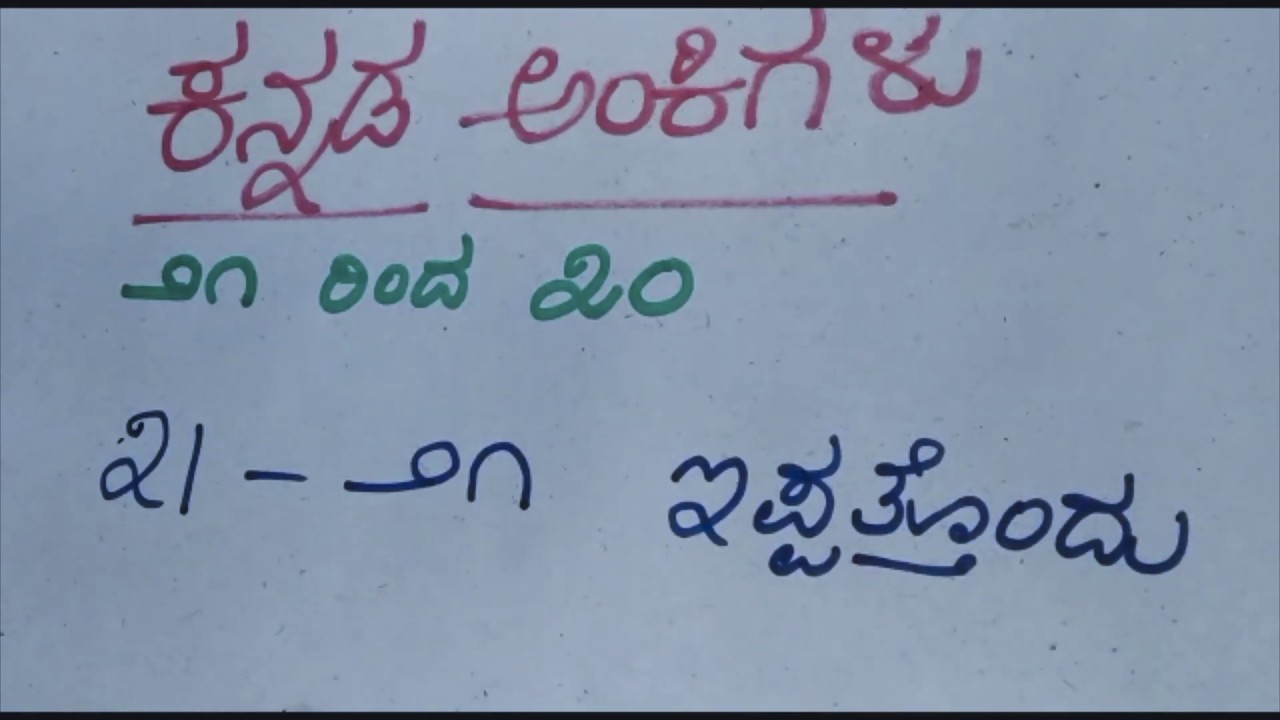 ಕನ್ನಡ ಅಂಕಿಗಳು
೨೧ ರಿಂದ ೩೦
21 - ೨೧ ಇಪ್ಪತ್ತೊಂದು